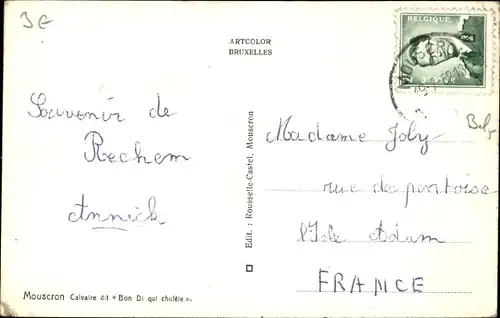 3€
ARTCOLOR
BRUXELLES
BELGIQUE
MOUSCRON
Souvenir de
Rechem
Annick
Edit. : Rousselle-Castel, Mouscron
Madame Joly
rue de pontoise
l'Isle Adam
FRANCE
Mouscron Calvaire dit « Bon Di qui chufèle ».